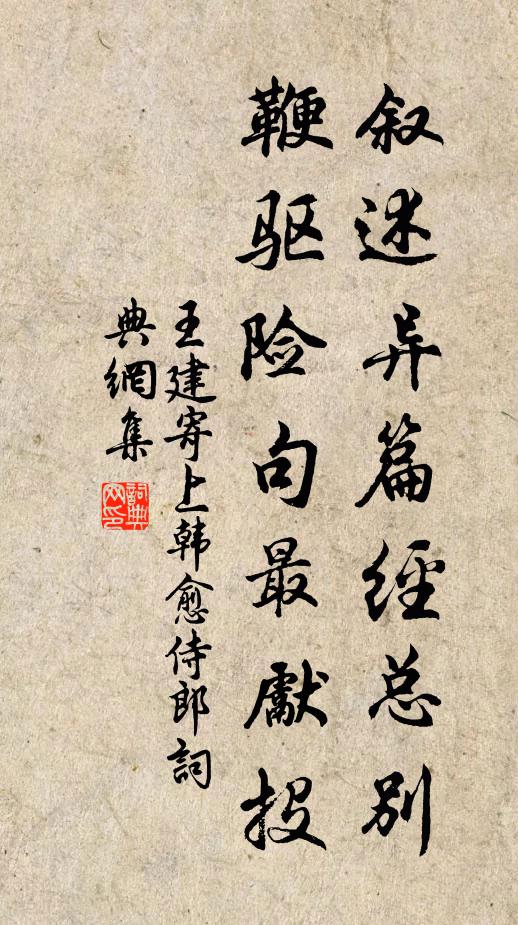 叙述异篇经总别
鞭驱险句最獻投
王建寄上韩愈侍郎詞
典網集
詞典
网印